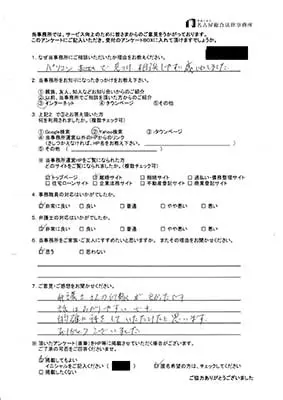 名古屋総合法律事務所
当事務所では、サービス向上のために皆さまからのご意見をうかがっております。
このアンケートにご記入いただき、受付のアンケートBOXに入れて頂けますでしょうか。
1. なぜ当事務所にご相談いただいたか理由をお教えください。
パソコン
見て
相談しやすく感じました
2. 当事務所をお知りになったきっかけをお教えください。
①親族、友人、知人などお知り合いからのご紹介
②以前、当事務所でご相談を頂いた方からのご紹介
③インターネット ④タウンページ ⑤その他
3. 上記2で③とお答え頂いた方
何を利用されましたか。(複数チェック可)
①Google検索 ②Yahoo検索 ③タウンページ
④当事務所運営以外のHPからのリンク
(さしつかえなければ、HP名をお教え下さい。)
⑤その他( )
※当事務所運営HPをご覧になられた方
どのサイトをご覧になられましたか。(複数チェック可)
□トップページ 離婚サイト □相続サイト □過払い・債務整理サイト
□住宅ローンサイト □企業法務サイト □不動産登記サイト □商業登記サイト
4. 事務職員の対応はいかがでしたか。
非常に良い □良い □普通 □やや悪い □悪い
5. 弁護士の対応はいかがでしたか。
非常に良い □良い □普通 □やや悪い □悪い
6. 当事務所をご家族・お友人にすすめたいと思いますか。またその理由をお聞かせください。
思う □思わない
7. ご意見・ご感想をお聞かせください。
弁護士さんの
話はわかりやすい です
的確な話をしていただけたと思います。
ありがとうございました
※頂いたアンケート(直筆)をHP等に掲載させていただく場合がございます。
ご了承の可否をご回答くださいませ。
掲載してもよい
イニシャルをご記入ください( ) 匿名希望の方は、チェックしてください
□掲載したくない
ご協力ありがとうございました